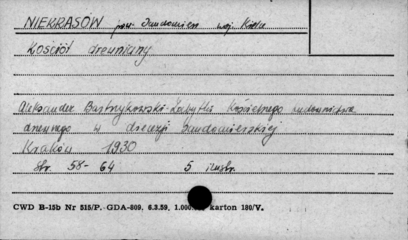 NIEKRASÓW pow. Sandomierz woj. Kielce
Kościół drewniany
Aleksander Bastrzykowski - Zabytki Kościelnego budownictwa
drewnego w diecezji Sandomierskiej
Kraków 1930
Str. 58 - 64 5 ilustr.
CWD B-15b Nr 515/P. GDA-809, 6.3.59, 1.000. karton 180/V.